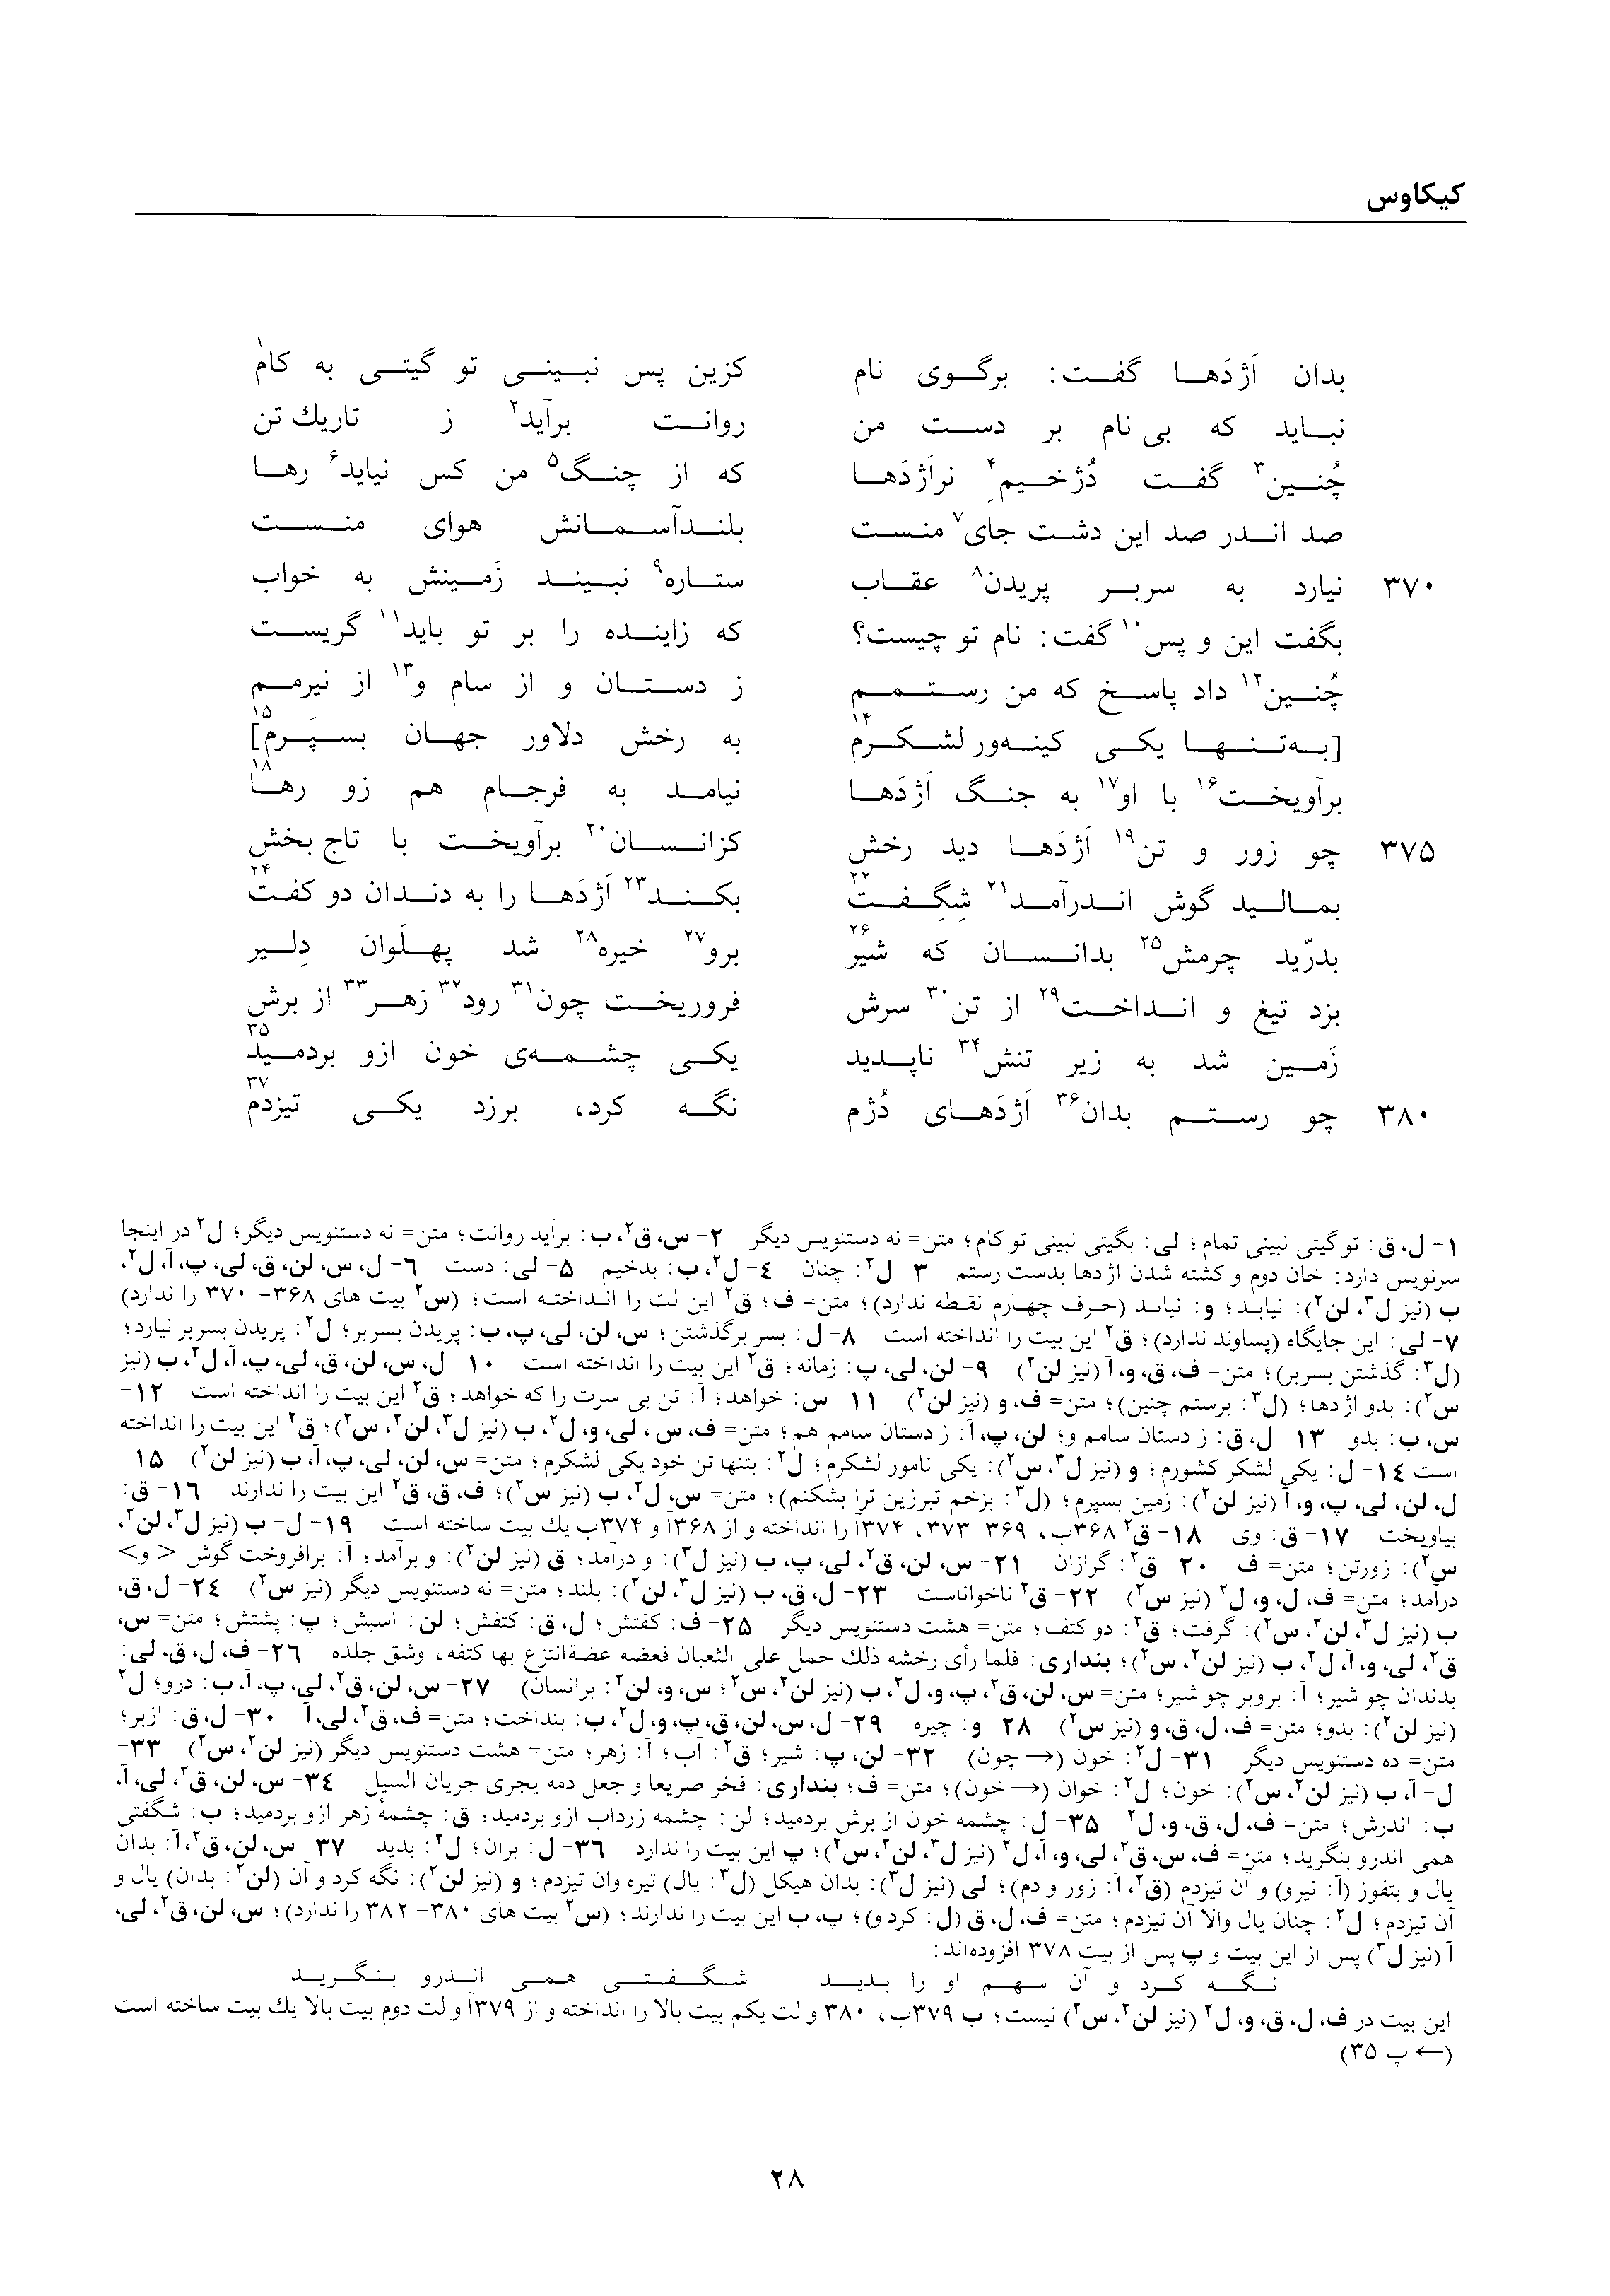 کیکاوس
بدان اَژدَها گفت: برگوی نام کزین پس نبینی تو گیتی به کام۱
نباید که بی‌نام بر دست من روانت برآید۲ ز تاریك تن
چُنین۳ گفت دُژخیم۴ نراَژدَها که از چنگ۵ من کس نیاید۶ رها
صد اندر صد این دشت جای۷ منست بلندآسمانش هوای منست
۳۷۰ نیارد به سربر پریدن۸ عقاب ستاره۹ نبیند زَمینش به خواب
بگفت این و پس۱۰ گفت: نام تو چیست؟ که زاینده را بر تو باید۱۱ گریست
چُنین۱۲ داد پاسخ که من رستمم ز دستان و از سام و۱۳ از نیرمم
[به‌تنها یکی کینه‌ور لشکرم۱۴ به رخش دلاور جهان بسپَرم]۱۵
برآویخت۱۶ با او۱۷ به جنگ اَژدَها نیامد به فرجام هم زو رها۱۸
۳۷۵ چو زور و تن۱۹ اَژدَها دید رخش کزانسان۲۰ برآویخت با تاج‌بخش
بمالید گوش اندرآمد۲۱ شِگِفت۲۲ بکند۲۳ اَژدَها را به دندان دو کفت۲۴
بدرّید چرمش۲۵ بدانسان که شیر۲۶ برو۲۷ خیره۲۸ شد پهلَوان دِلیر
بزد تیغ و انداخت۲۹ از تن۳۰ سرش فروریخت چون۳۱ رود۳۲ زهر۳۳ از برش
زَمین شد به زیر تنش۳۴ ناپدید یکی چشمه‌ی خون ازو بردمید۳۵
۳۸۰ چو رستم بدان۳۶ اَژدَهای دُژم نگه کرد، برزد یکی تیزدم۳۷
۱- ل، ق: تو گیتی نبینی تمام؛ لی: بگیتی نبینی تو کام؛ متن= نه دستنویس دیگر ۲- س، ق۲، ب: برآید روانت؛ متن= نه دستنویس دیگر؛ ل۲ در اینجا
سرنویس دارد: خان دوم و کشته شدن اژدها بدست رستم ۳- ل۲: چنان ۴- ل۲، ب: بدخیم ۵- لی: دست ۶- ل، س، لن، ق، لی، پ، آ، ل۲،
ب (نیز ل۳، لن۲): نیابد؛ و: نیاٮد (حرف چهارم نقطه ندارد)؛ متن= ف؛ ق۲ این لت را انداخته است؛ (س۲ بیت های ۳۶۸- ۳۷۰ را ندارد)
۷- لی: این جایگاه (پساوند ندارد)؛ ق۲ این بیت را انداخته است ۸- ل: بسر برگذشتن؛ س، لن، لی، پ، ب: پریدن بسربر؛ ل۲: پریدن بسربر نیارد؛
(ل۳: گذشتن بسربر)؛ متن= ف، ق، و، آ (نیز لن۲) ۹- لن، لی، پ: زمانه؛ ق۲ این بیت را انداخته است ۱۰- ل، س، لن، ق، لی، پ، آ، ل۲، ب (نیز
س۲): بدو اژدها؛ (ل۳: برستم چنین)؛ متن= ف، و (نیز لن۲) ۱۱- س: خواهد؛ آ: تن بی سرت را که خواهد؛ ق۲ این بیت را انداخته است ۱۲-
س، ب: بدو ۱۳- ل، ق: ز دستان سامم و؛ لن، پ، آ: ز دستان سامم هم؛ متن= ف، س، لی، و، ل۲، ب (نیز ل۳، لن۲، س۲)؛ ق۲ این بیت را انداخته
است ۱۴- ل: یکی لشکر کشورم؛ و (نیز ل۳، س۲): یکی نامور لشکرم؛ ل۲: بتنها تن خود یکی لشکرم؛ متن= س، لن، لی، پ، آ، ب (نیز لن۲) ۱۵-
ل، لن، لی، پ، و، آ (نیز لن۲): زمین بسپرم؛ (ل۳: بزخم تبرزین ترا بشکنم)؛ متن= س، ل۲، ب (نیز س۲)؛ ف، ق، ق۲ این بیت را ندارند ۱۶- ق:
بیاویخت ۱۷- ق: وی ۱۸- ق۲ ۳۶۸ب، ۳۶۹-۳۷۳، ۳۷۴آ را انداخته و از ۳۶۸آ و ۳۷۴ب یك بیت ساخته است ۱۹- ل- ب (نیز ل۳، لن۲،
س۲): زورتن؛ متن= ف ۲۰- ق۲: گرازان ۲۱- س، لن، ق۲، لی، پ، ب (نیز ل۳): و درآمد؛ ق (نیز لن۲): و برآمد؛ آ: برافروخت گوش <و>
درآمد؛ متن= ف، ل، و، ل۲ (نیز س۲) ۲۲- ق۲ ناخواناست ۲۳- ل، ق، ب (نیز ل۳، لن۲): بلند؛ متن= نه دستنویس دیگر (نیز س۲) ۲۴- ل، ق،
ب (نیز ل۳، لن۲، س۲): گرفت؛ ق۲: دو کتف؛ متن= هشت دستنویس دیگر ۲۵- ف: کفتش؛ ل، ق: کتفش؛ لن: اسبش؛ پ: پشتش؛ متن= س،
ق۲، لی، و، آ، ل۲، ب (نیز لن۲، س۲)؛ بنداری: فلما رأی رخشه ذلك حمل علی الثعبان فعضه عضةانتزع بها کتفه، وشق جلده ۲۶- ف، ل، ق، لی:
بدندان چو شیر؛ آ: بروبر چو شیر؛ متن= س، لن، ق۲، پ، و، ل۲، ب (نیز لن۲، س۲؛ س، و، لن۲: برانسان) ۲۷- س، لن، ق۲، لی، پ، آ، ب: درو؛ ل۲
(نیز لن۲): بدو؛ متن= ف، ل، ق، و (نیز س۲) ۲۸- و: چیره ۲۹- ل، س، لن، ق، پ، و، ل۲، ب: بنداخت؛ متن= ف، ق۲، لی، آ ۳۰- ل، ق: ازبر؛
متن= ده دستنویس دیگر ۳۱- ل۲: خون (→ چون) ۳۲- لن، پ: شیر؛ ق۲: آب؛ آ: زهر؛ متن= هشت دستنویس دیگر (نیز لن۲، س۲) ۳۳-
ل- آ، ب (نیز لن۲، س۲): خون؛ ل۲: خوان (→ خون)؛ متن= ف؛ بنداری: فخر صریعا و جعل دمه یجری جریان السیل ۳۴- س، لن، ق۲، لی، آ،
ب: اندرش؛ متن= ف، ل، ق، و، ل۲ ۳۵- ل: چشمه خون از برش بردمید؛ لن: چشمه زرداب ازو بردمید؛ ق: چشمهٔ زهر ازو بردمید؛ ب: شگفتی
همی اندرو بنگرید؛ متن= ف، س، ق۲، لی، و، آ، ل۲ (نیز ل۳، لن۲، س۲)؛ پ این بیت را ندارد ۳۶- ل: بران؛ ل۲: بدید ۳۷- س، لن، ق۲، آ: بدان
یال و بتفوز (آ: نیرو) و آن تیزدم (ق۲، آ: زور و دم)؛ لی (نیز ل۳): بدان هیکل (ل۳: یال) تیره وان تیزدم؛ و (نیز لن۲): نگه کرد و آن (لن۲: بدان) یال و
آن تیزدم؛ ل۲: چنان یال والا آن تیزدم؛ متن= ف، ل، ق (ل: کرد و)؛ پ، ب این بیت را ندارند؛ (س۲ بیت های ۳۸۰- ۳۸۲ را ندارد)؛ س، لن، ق۲، لی،
آ (نیز ل۳) پس از این بیت و پ پس از بیت ۳۷۸ افزوده‌اند:
نگه کرد و آن سهم او را بدید شگفتی همی اندرو بنگرید
این بیت در ف، ل، ق، و، ل۲ (نیز لن۲، س۲) نیست؛ ب ۳۷۹ب، ۳۸۰ و لت یکم بیت بالا را انداخته و از ۳۷۹آ و لت دوم بیت بالا یك بیت ساخته است
(← پ ۳۵)
۲۸